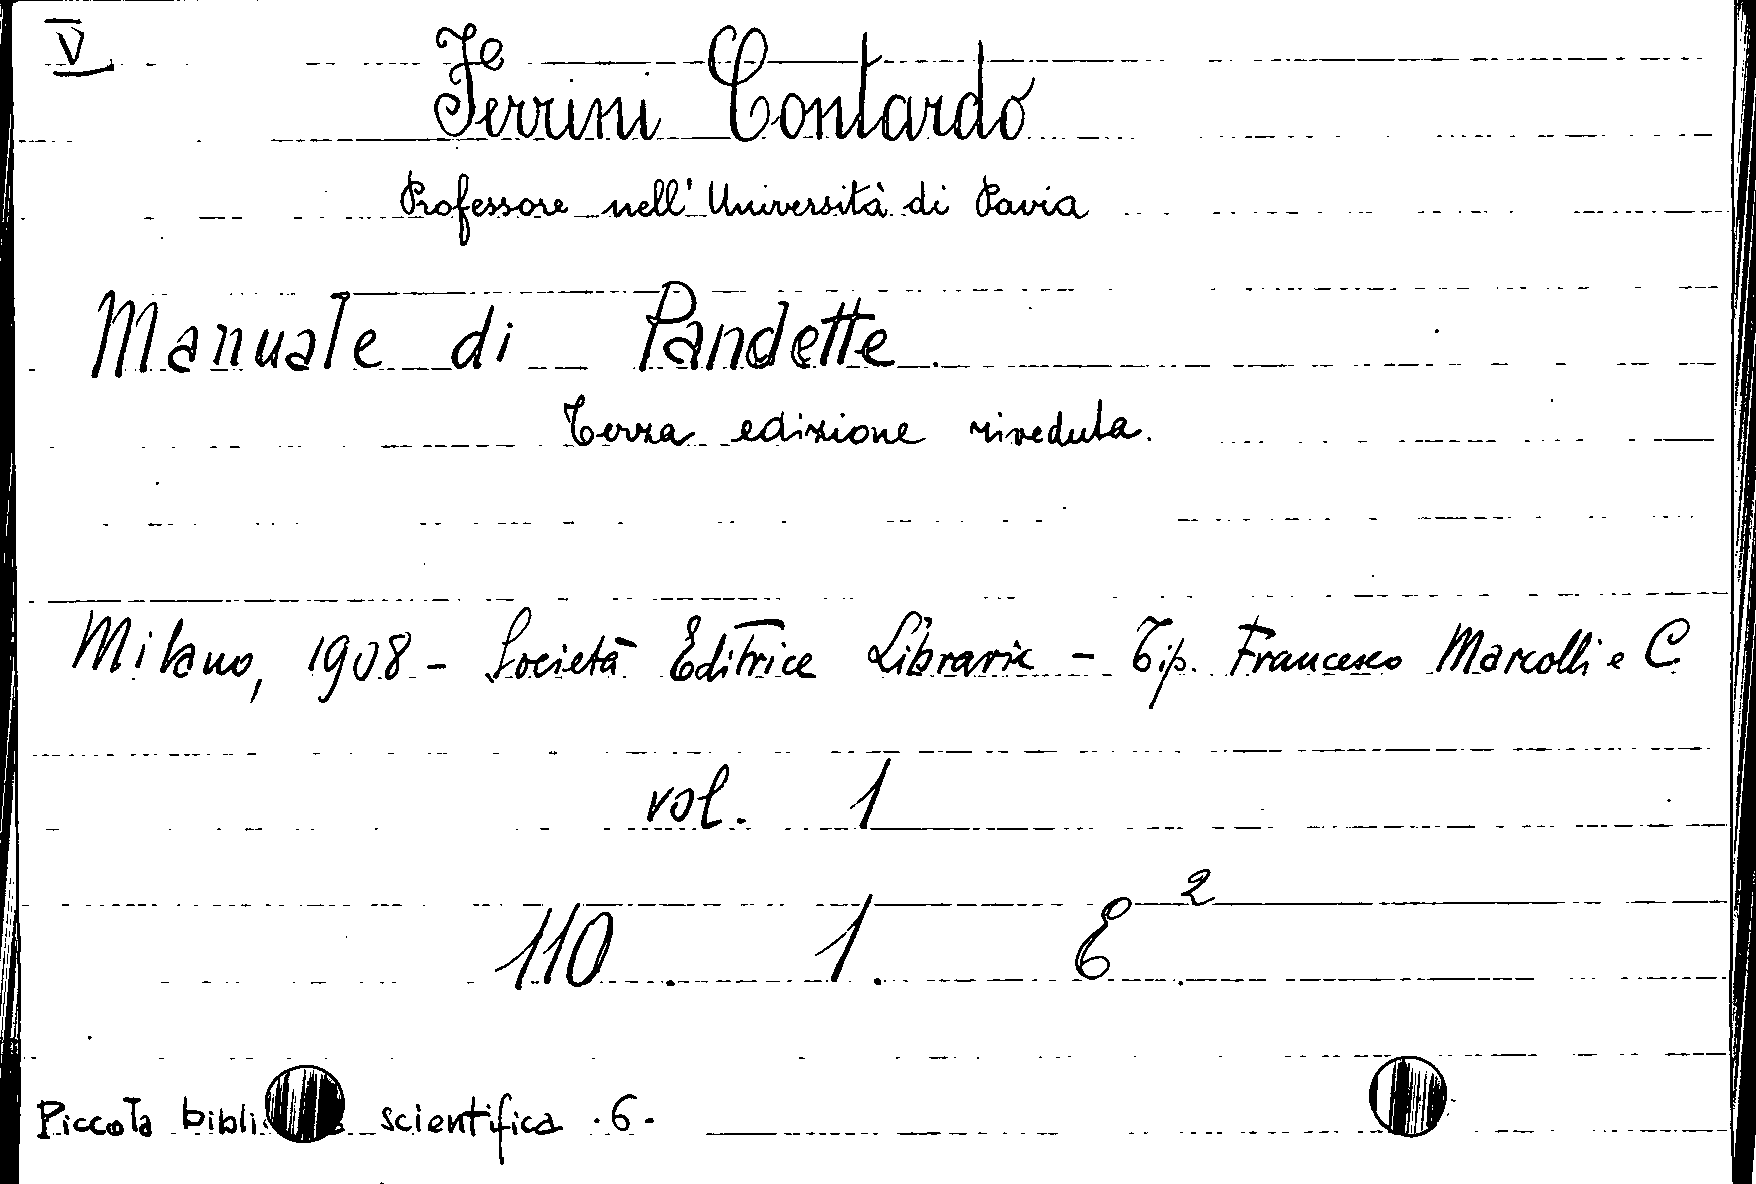 V Fe
Ferrini Contardo
Professore nell'Università di Pavia
Manuale di Pandette.
Terza edizione riveduta.
Milano, 1908 - Società Editrice Libraria - Tip. Francesco Marcolli e C.
vol. 1
110 . 1. E².
Piccola scientifica . 6 .